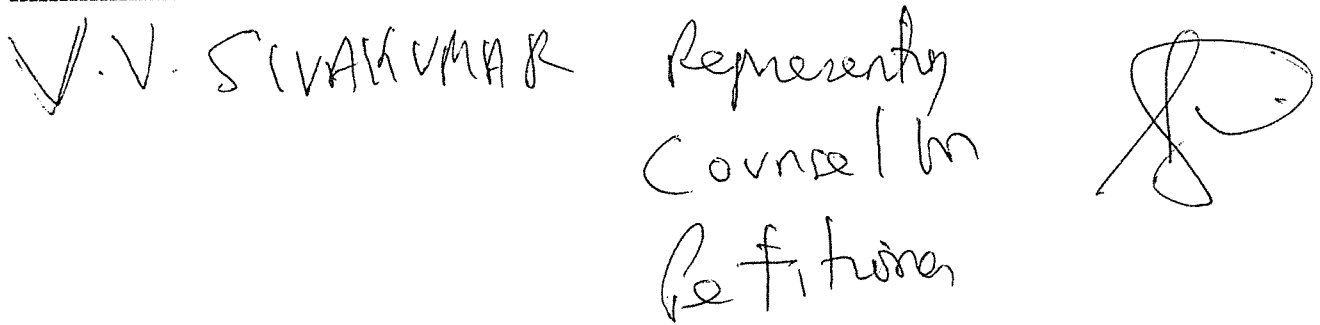 V.V. SIVAKUMAR Representing
Counsel for
Petitioner